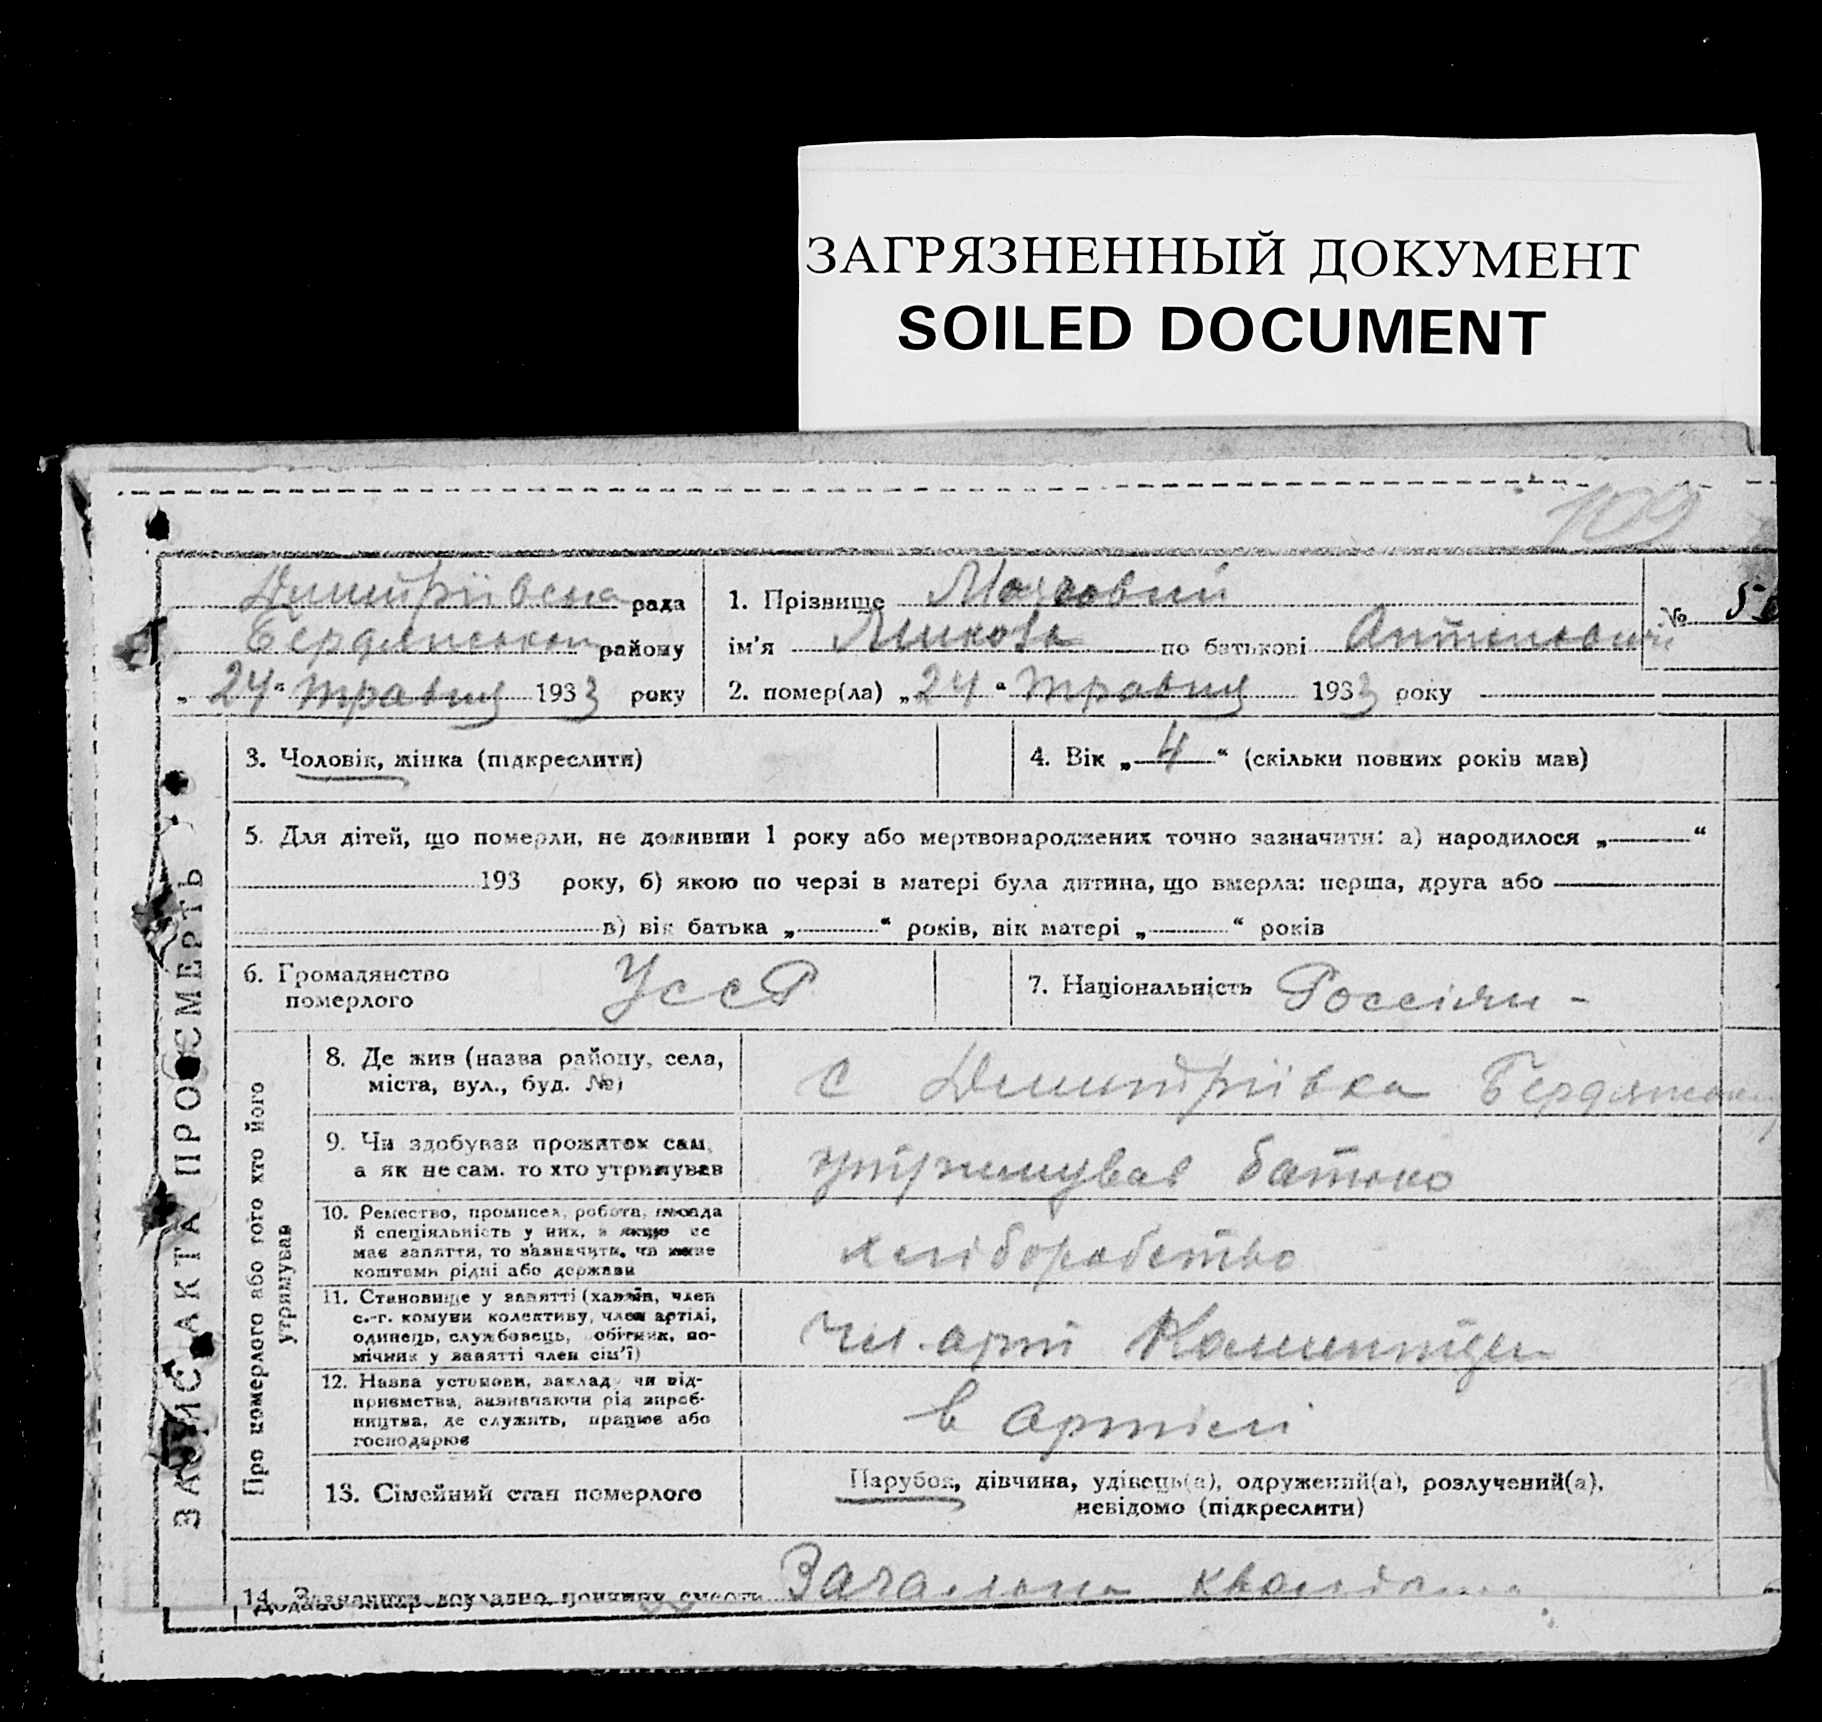 ЗАГРЯЗНЕННЫЙ ДОКУМЕНТ
SOILED DOCUMENT
109
Дмитріівська рада
Бердянського району
„24“ травня 1933 року
1. Прізвище
ім'я Микола по батькові Антонович
2. помер(ла) „24“ травня 1933 року
№
ЗАПИС АКТА ПРО СМЕРТЬ
3. Чоловік, жінка (підкреслити)
4. Вік „4“ (скільки повних років мав)
5. Для дітей, що померли, не доживши 1 року або мертвонароджених точно зазначити: а) народилося „ “
193 року, б) якою по черзі в матері була дитина, що вмерла: перша, друга або
в) вік батька „ “ років, вік матері „ “ років
6. Громадянство
померлого
УССР
7. Національність Россіян -
Про померлого або того хто його
утримував
8. Де жив (назва району, села,
міста, вул., буд. №)
с Дмитріівка Бердянськ
9. Чи здобував прожиток сам,
а як не сам, то хто утримував
утримував батько
10. Ремество, промисел, робота, посада
й спеціяльність у них, а якщо не
має заняття, то зазначити, чи живе
коштами рідні або держави
хліборобство
11. Становище у занятті (хазяїн, член
с.-г. комуни колективу, член артілі,
одинець, службовець, робітник, по-
мічник у занятті член сім'ї)
чл. арт
12. Назва установи, закладу чи під-
приємства, зазначаючи рід вироб-
ництва, де служить, працює або
господарює
в артілі
13. Сімейний стан померлого
Парубок, дівчина, удівець(а), одружений(а), розлучений(а),
невідомо (підкреслити)
14. Зазначити докладно причину смерти Загальна